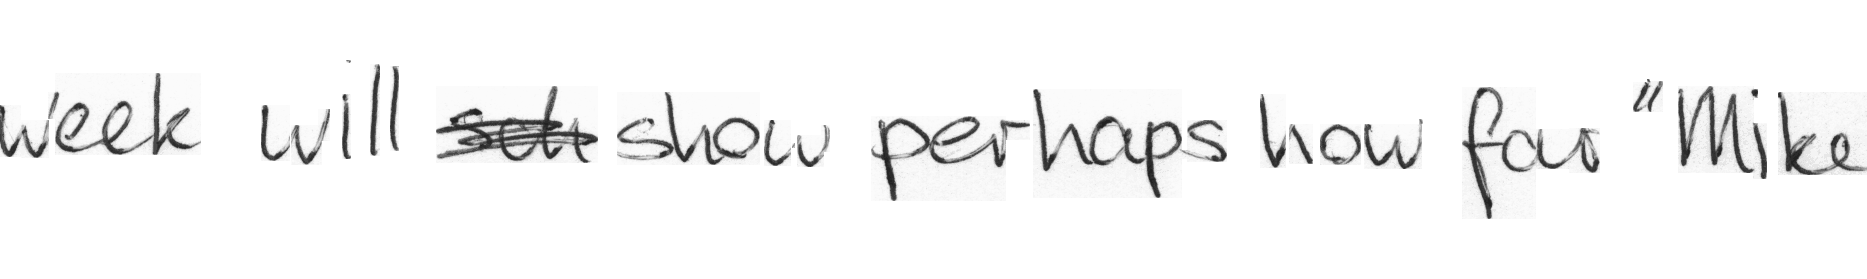 week will show perhaps how far "Mike